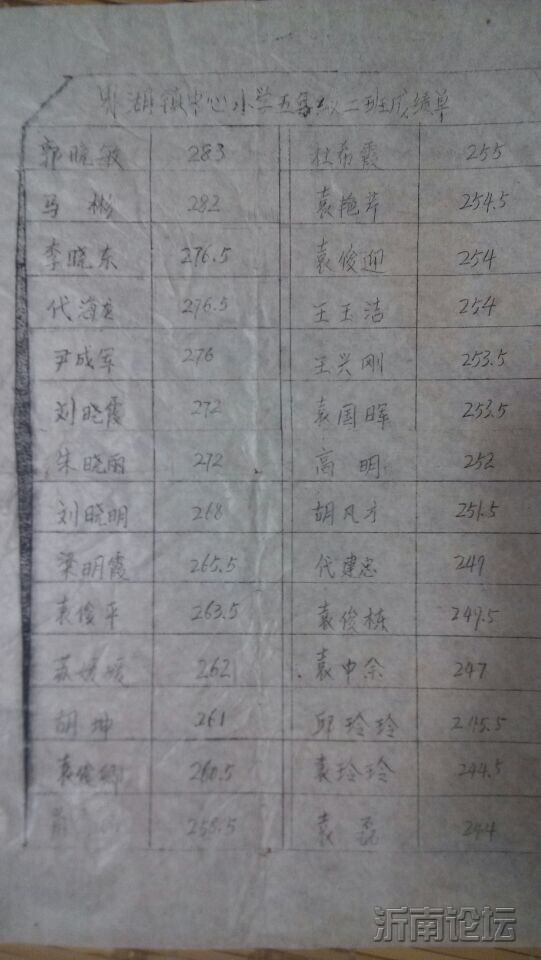 湖镇中心小学五年级二班成绩单
郭晓敏 283 杜希霞 255
马彬 282 袁艳芹 254.5
李晓东 276.5 袁俊迎 254
代海龙 276.5 王玉洁 254
尹成军 276 王兴刚 253.5
刘晓霞 272 袁国晖 253.5
朱晓丽 272 高明 252
刘晓明 268 胡凡才 251.5
梁明霞 265.5 代建忠 249
袁俊平 263.5 袁俊栋 249.5
苏媛媛 262 袁中余 247
胡坤 261 邱玲玲 245.5
袁俊卿 260.5 袁玲玲 244.5
258.5 袁磊 244
沂南论坛